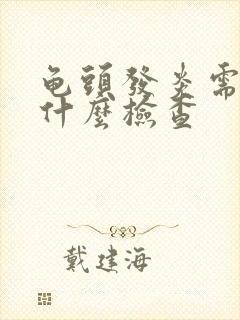 龟頭發炎需
什麼檢查
戴建海